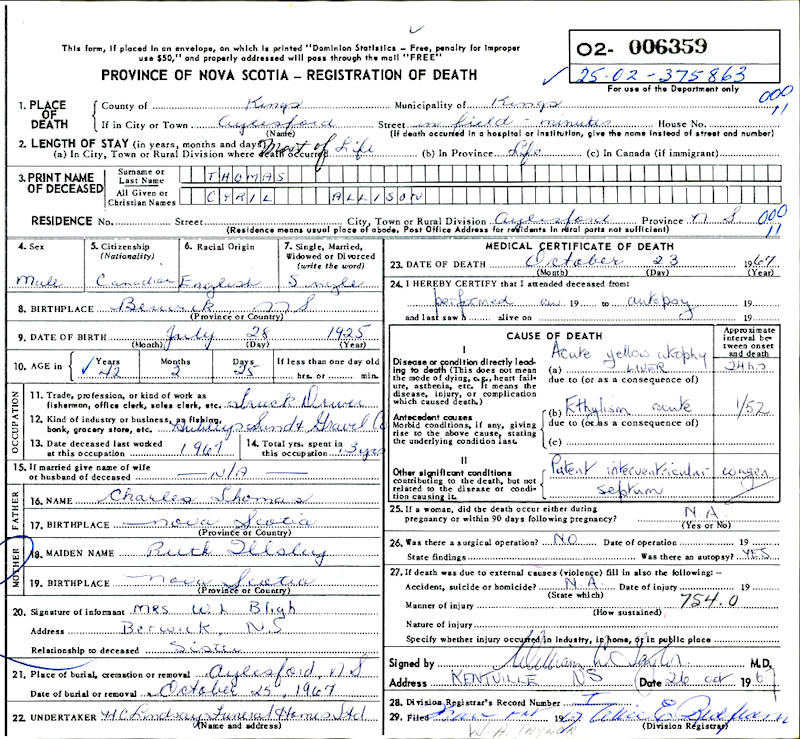 This form, if placed in an envelope, on which is printed "Dominion Statistics – Free, penalty for improper
use $50," and properly addressed will pass through the mail "FREE"
PROVINCE OF NOVA SCOTIA – REGISTRATION OF DEATH
O2- 006359
25-02-375863
For use of the Department only
1. PLACE OF DEATH
County of Kings Municipality of Kings
000
11
If in City or Town Aylesford Street in field - minutes House No.
(Name) (If death occurred in a hospital or institution, give the name instead of street and number)
2. LENGTH OF STAY (in years, months and days)
(a) In City, Town or Rural Division where death occurred Most of Life (b) In Province Life (c) In Canada (if immigrant)
3. PRINT NAME OF DECEASED
Surname or Last Name THOMAS
All Given or Christian Names CYRIL ALLISON
RESIDENCE No. Street City, Town or Rural Division Aylesford Province N S
000
11
(Residence means usual place of abode. Post Office Address for residents in rural parts not sufficient)
4. Sex Male
5. Citizenship (Nationality) Canadian
6. Racial Origin English
7. Single, Married, Widowed or Divorced (write the word) Single
8. BIRTHPLACE Berwick NS
(Province or Country)
9. DATE OF BIRTH July 28 1925
(Month) (Day) (Year)
10. AGE in Years 42 Months 2 Days 25 If less than one day old
hrs. or min.
OCCUPATION
11. Trade, profession, or kind of work as
fisherman, office clerk, sales clerk, etc. Truck Driver
12. Kind of industry or business, as fishing,
bank, grocery store, etc. Sand & Gravel Co
13. Date deceased last worked
at this occupation 1967
14. Total yrs. spent in
this occupation 3 yrs
15. If married give name of wife
or husband of deceased N/A
FATHER
16. NAME Charles Thomas
17. BIRTHPLACE Nova Scotia
(Province or Country)
MOTHER
18. MAIDEN NAME Ruth Illsley
19. BIRTHPLACE Nova Scotia
(Province or Country)
20. Signature of informant Mrs W. L Bligh
Address Berwick, NS
Relationship to deceased Sister
21. Place of burial, cremation or removal Aylesford, N S
Date of burial or removal October 25, 1967
22. UNDERTAKER H C Lindsay Funeral Homes Ltd
(Name and address)
MEDICAL CERTIFICATE OF DEATH
23. DATE OF DEATH October 23 1967
(Month) (Day) (Year)
24. I HEREBY CERTIFY that I attended deceased from:
performed an 19 to autopsy 19
and last saw h alive on 19
CAUSE OF DEATH
Approximate interval between onset and death
I
Disease or condition directly leading to death (This does not mean
the mode of dying, e.g., heart failure, asthenia, etc. It means the
disease, injury, or complication
which caused death.)
Acute yellow atrophy
(a) LIVER 24 hrs
due to (or as a consequence of)
Antecedent causes
Morbid conditions, if any, giving
rise to the above cause, stating
the underlying condition last.
(b) Ethylism acute 1/52
due to (or as a consequence of)
(c)
II
Other significant conditions
contributing to the death, but not
related to the disease or condition causing it.
Patent interventricular septum congen
25. If a woman, did the death occur either during
pregnancy or within 90 days following pregnancy? N A
(Yes or No)
26. Was there a surgical operation? NO Date of operation 19
State findings Was there an autopsy? YES
27. If death was due to external causes (violence) fill in also the following:–
Accident, suicide or homicide? N.A. Date of injury 19
(State which)
Manner of injury 754.0
(How sustained)
Nature of injury
Specify whether injury occurred in industry, in home, or in public place
Signed by William M.D.
Address KENTVILLE NS Date 26 oct 1967
28. Division Registrar's Record Number
29. Filed
(Division Registrar)